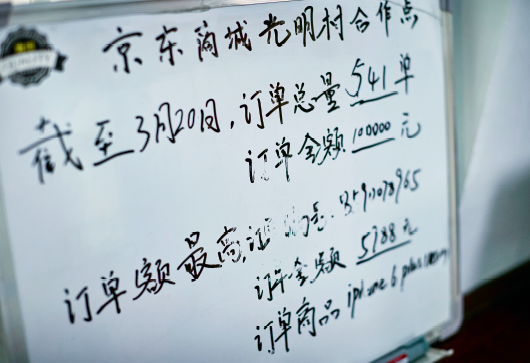 京东商城光明村合作点
截至3月20日，订单总量 541 单
订单金额 100000 元
订单额最高
订单金额 5788 元
订单商品 iphone 6 plus